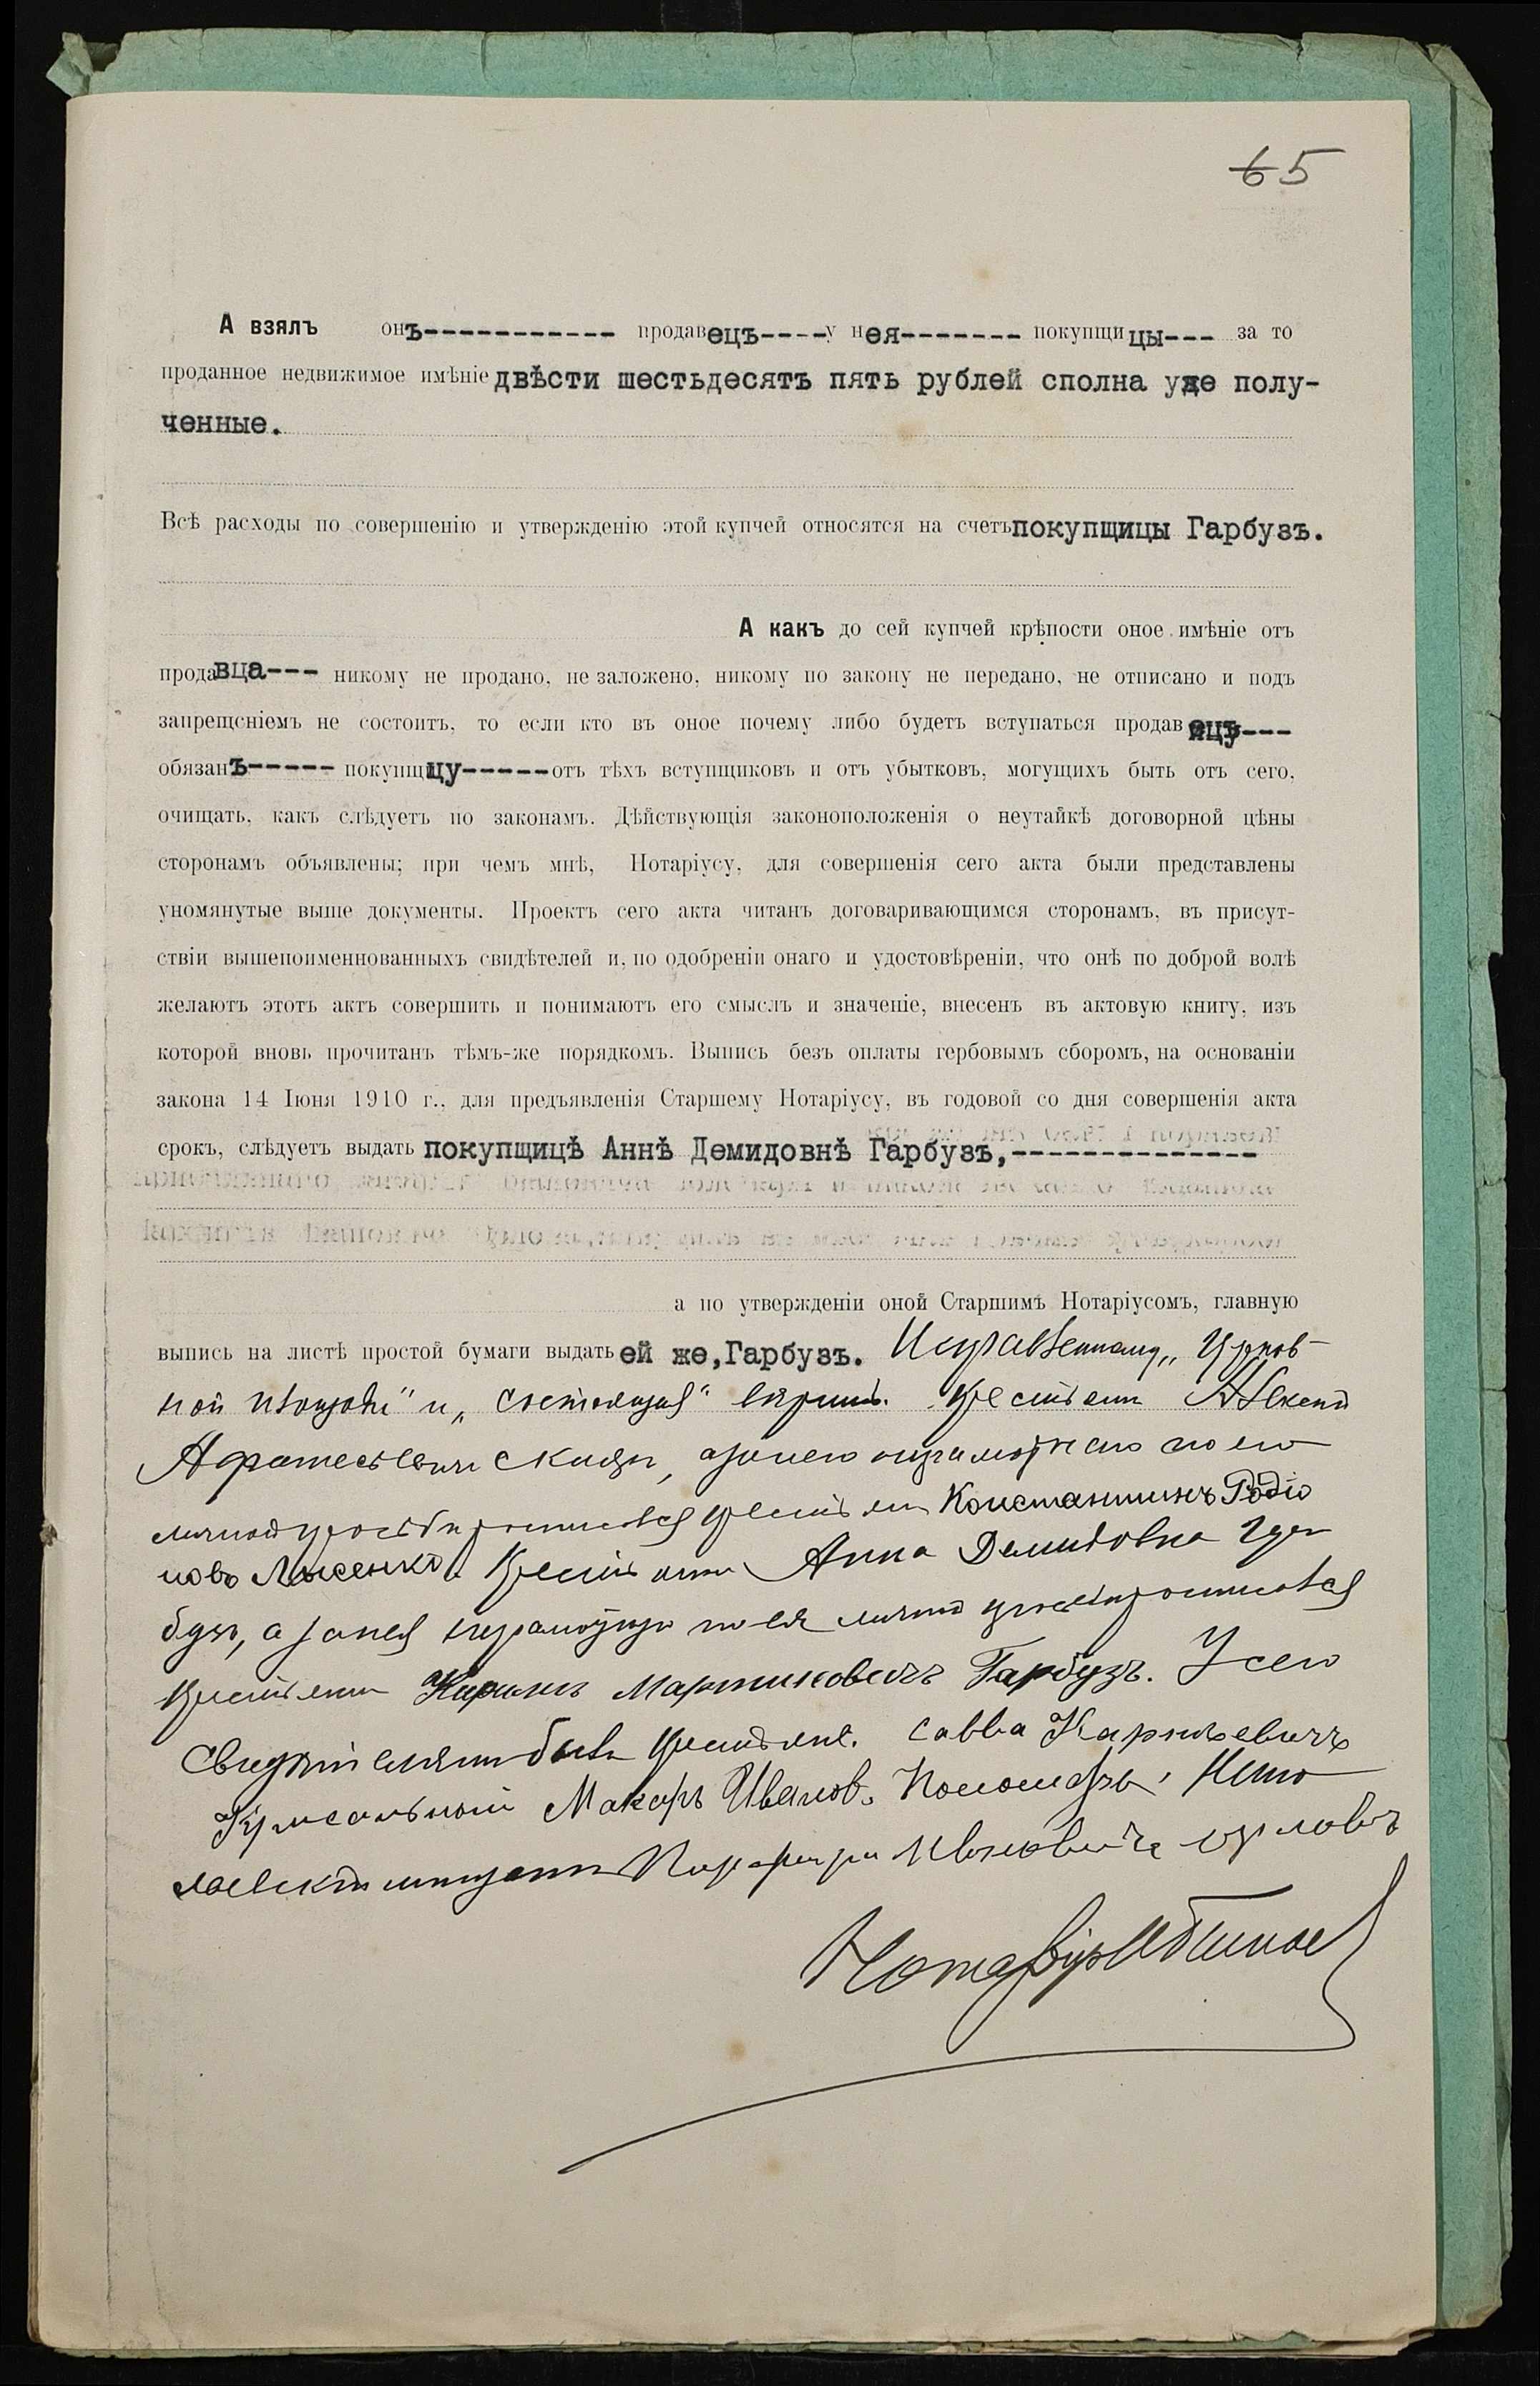 65
А взялъ онъ----------- продавецъ----у нея------- покупщицы--- за то
проданное недвижимое имѣніе двѣсти шестьдесятъ пять рублей сполна уже полу-
ченные.
Всѣ расходы по совершенію и утвержденію этой купчей относятся на счетъ покупщицы Гарбузъ.
А какъ до сей купчей крѣпости оное имѣніе отъ
продавца--- никому не продано, не заложено, никому по закону не передано, не отписано и подъ
запрещеніемъ не состоитъ, то если кто въ оное почему либо будетъ вступаться продавецъ---
обязанъ----- покупщицу------отъ тѣхъ вступщиковъ и отъ убытковъ, могущихъ быть отъ сего,
очищать, какъ слѣдуетъ по законамъ. Дѣйствующія законоположенія о неутайкѣ договорной цѣны
сторонамъ объявлены; при чемъ мнѣ, Нотаріусу, для совершенія сего акта были представлены
упомянутые выше документы. Проектъ сего акта читанъ договаривающимся сторонамъ, въ присут-
ствіи вышепоименнованныхъ свидѣтелей и, по одобреніи онаго и удостовѣреніи, что онѣ по доброй волѣ
желаютъ этотъ актъ совершить и понимаютъ его смыслъ и значеніе, внесенъ въ актовую книгу, изъ
которой вновь прочитанъ тѣмъ-же порядкомъ. Выпись безъ оплаты гербовымъ сборомъ, на основаніи
закона 14 Іюня 1910 г., для предъявленія Старшему Нотаріусу, въ годовой со дня совершенія акта
срокъ, слѣдуетъ выдать покупщицѣ Аннѣ Демидовнѣ Гарбузъ,--------------
а по утвержденіи оной Старшимъ Нотаріусомъ, главную
выпись на листѣ простой бумаги выдать ей же, Гарбузъ.
ной площади" и "состоящая" вѣрить. Крестьянинъ
а за него неграмотнаго по его
личной просьбѣ росписался крестьянинъ Константинъ Родіо
новъ Лысенко. Крестьянка Анна Демидовна Гар
бузъ, а за нея неграмотную по ея личной просьбѣ росписался
крестьянинъ Мартиновичъ Гарбузъ. У сего
свидѣтелями были крестьяне: Савва
Макаръ Ивановъ и
мѣщанинъ
Нотаріусъ